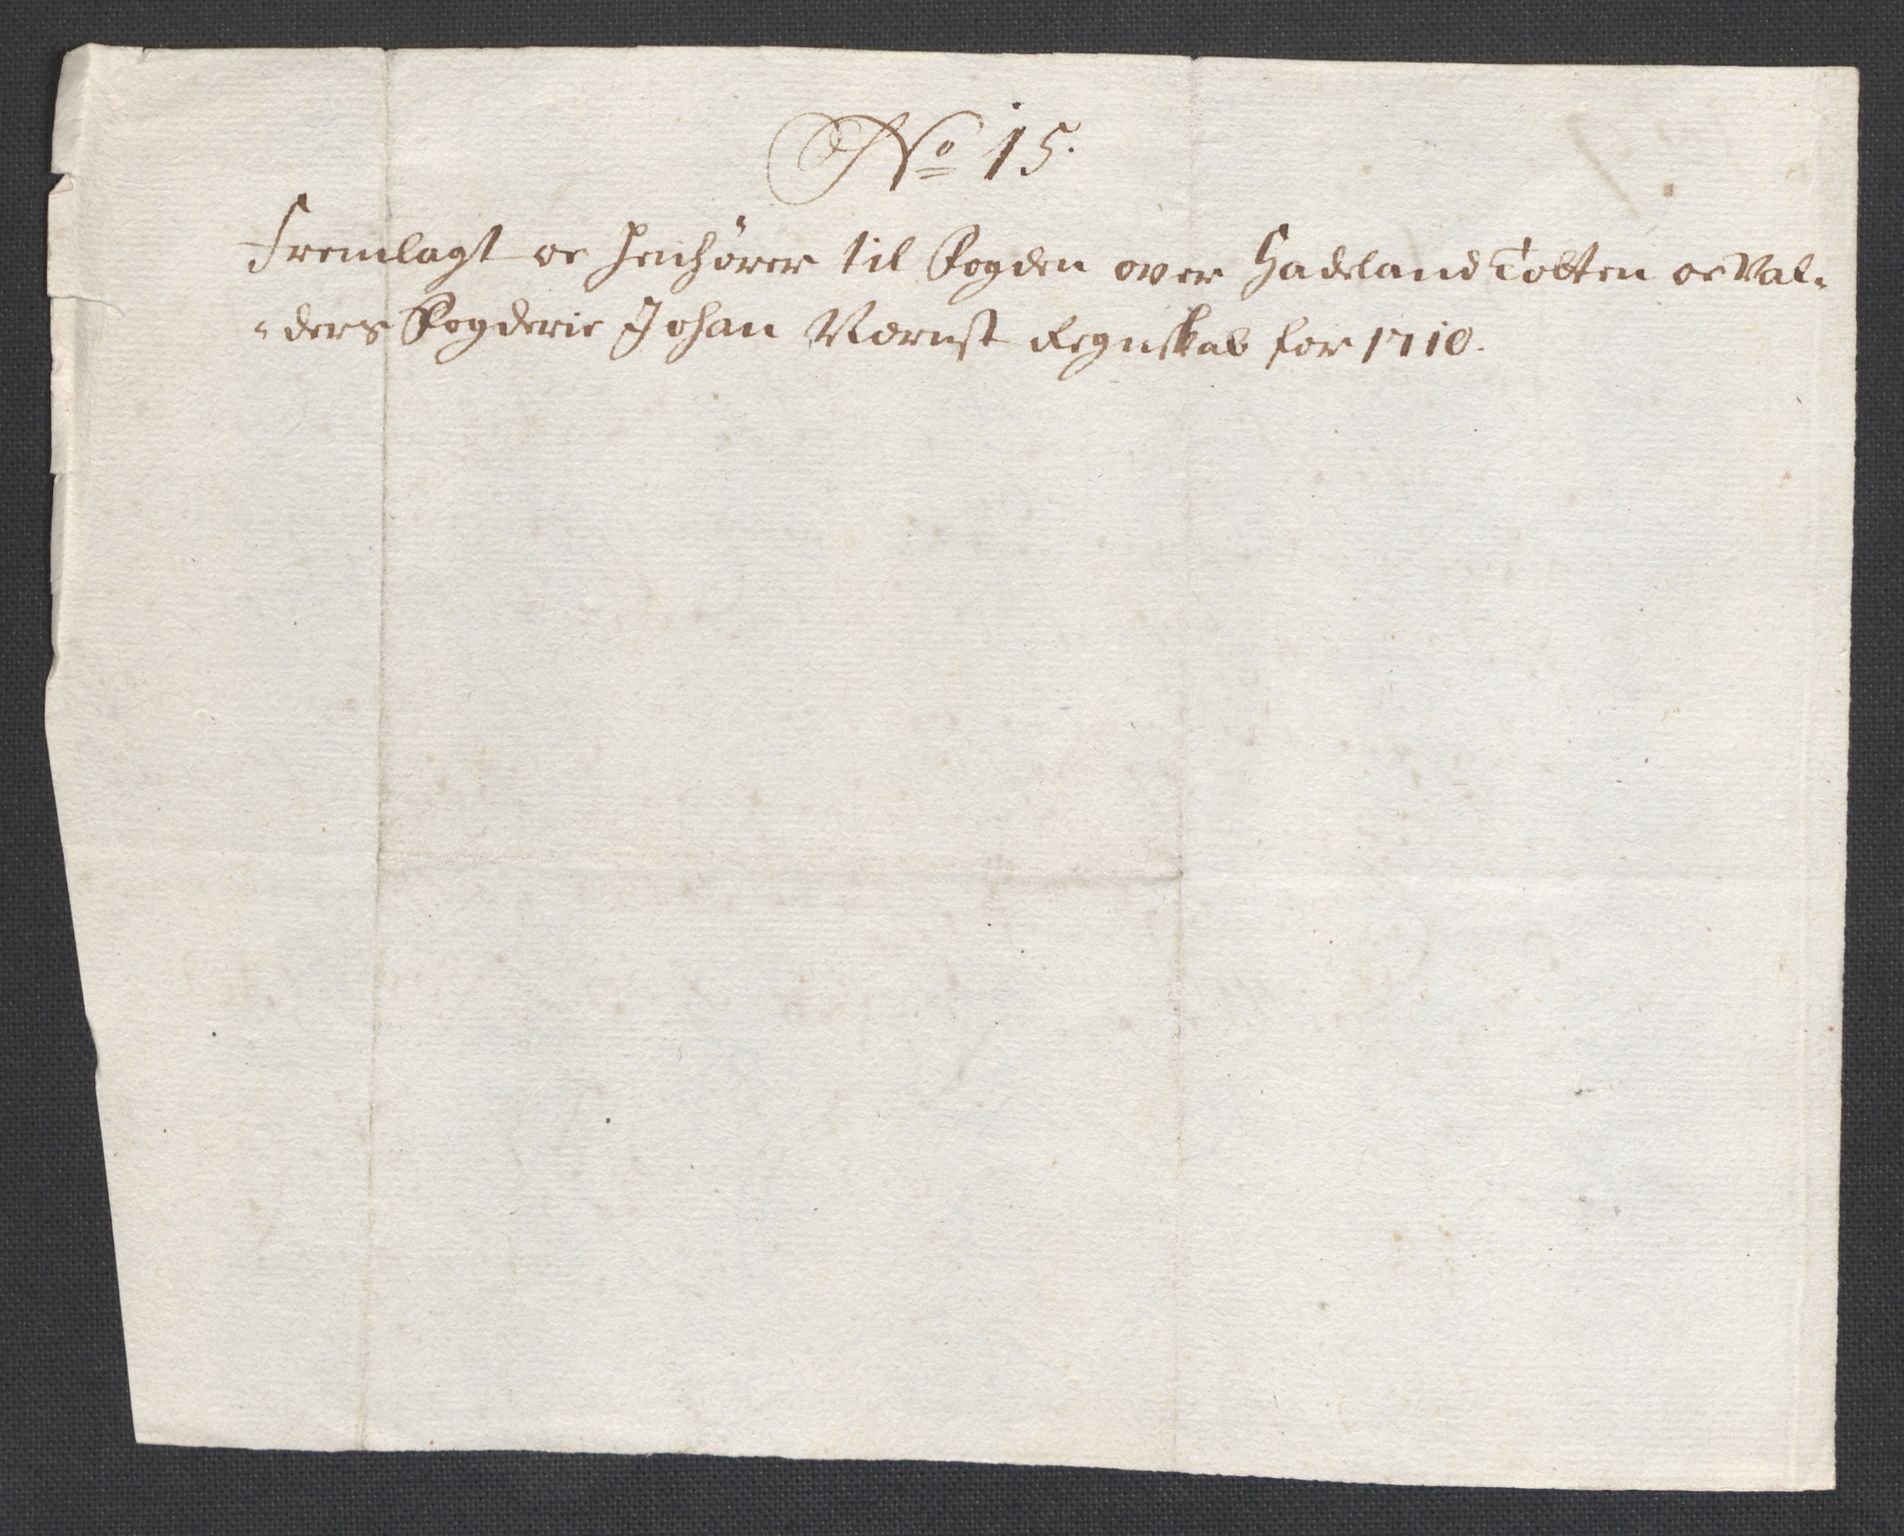 No 15.
Fremlagt oc henhører til Fogden over Hadeland Tobten oc Val-
-ders Fogderie Johan Wernst Regnskab for 1710.